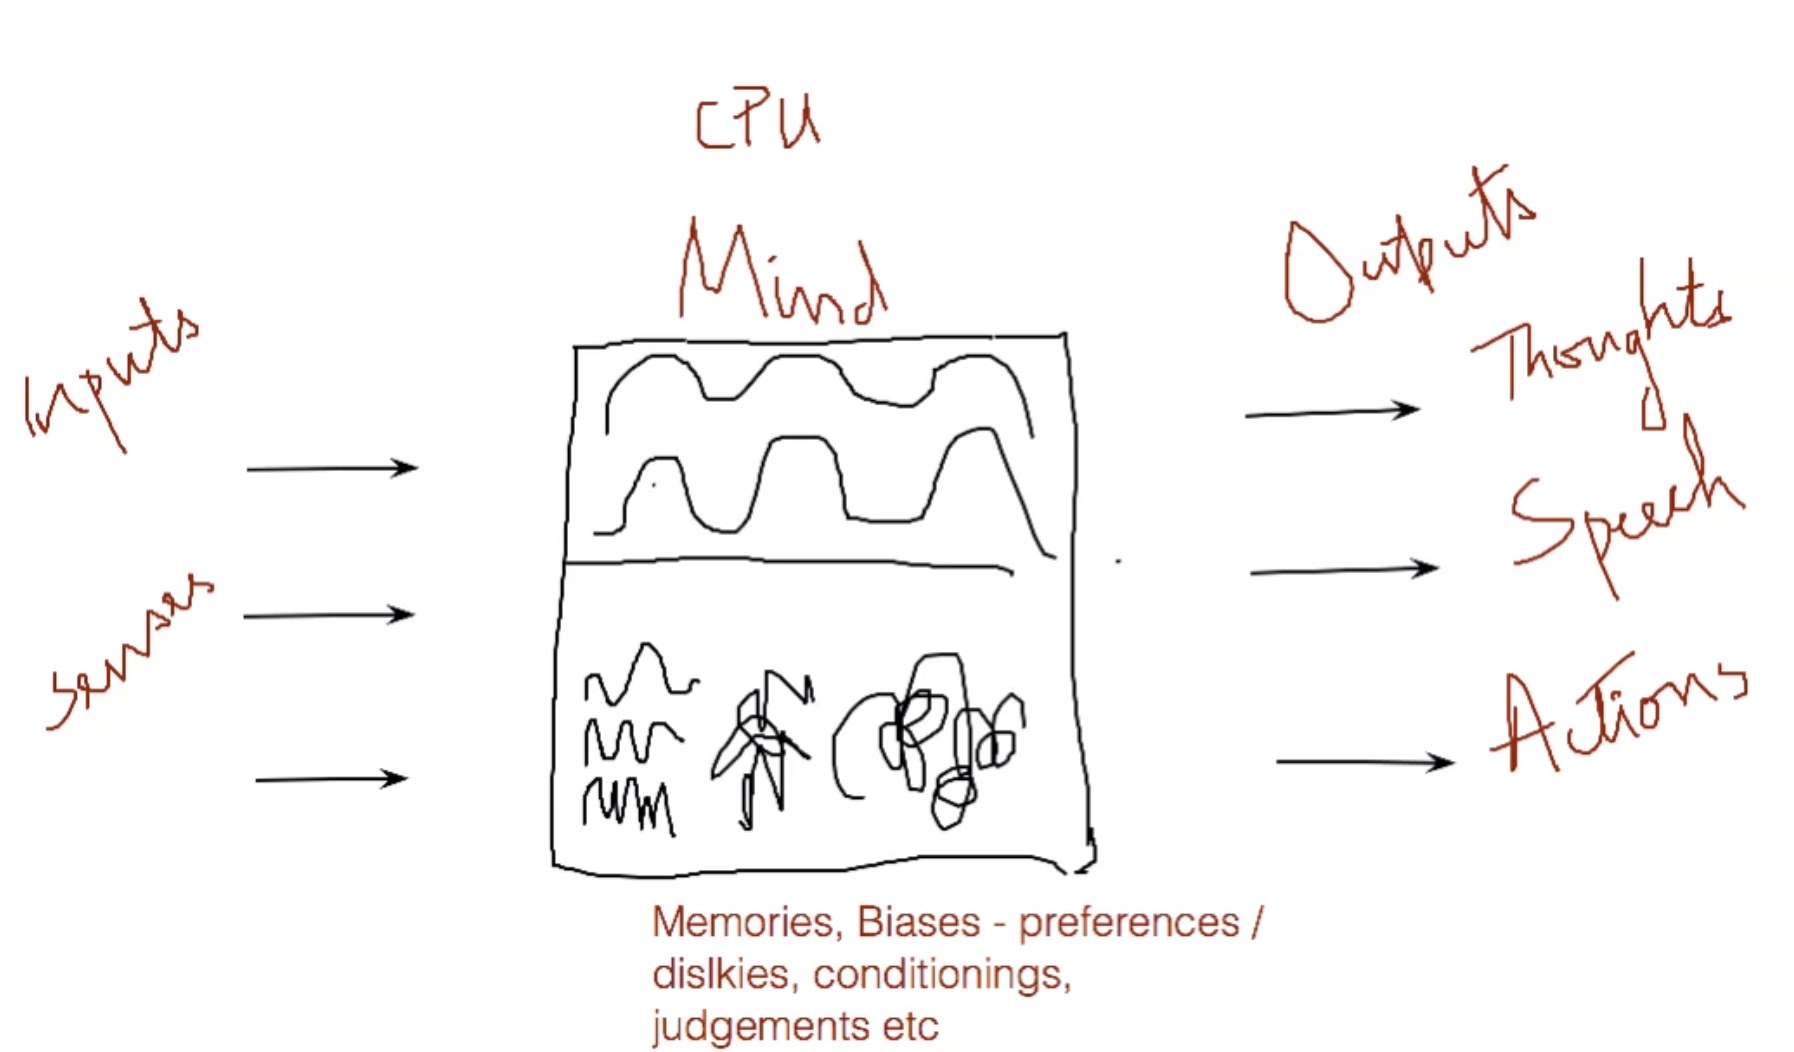 CPU
Mind
Inputs
Senses
Outputs
Thoughts
Speech
Actions
Memories, Biases - preferences /
dislkies, conditionings,
judgements etc